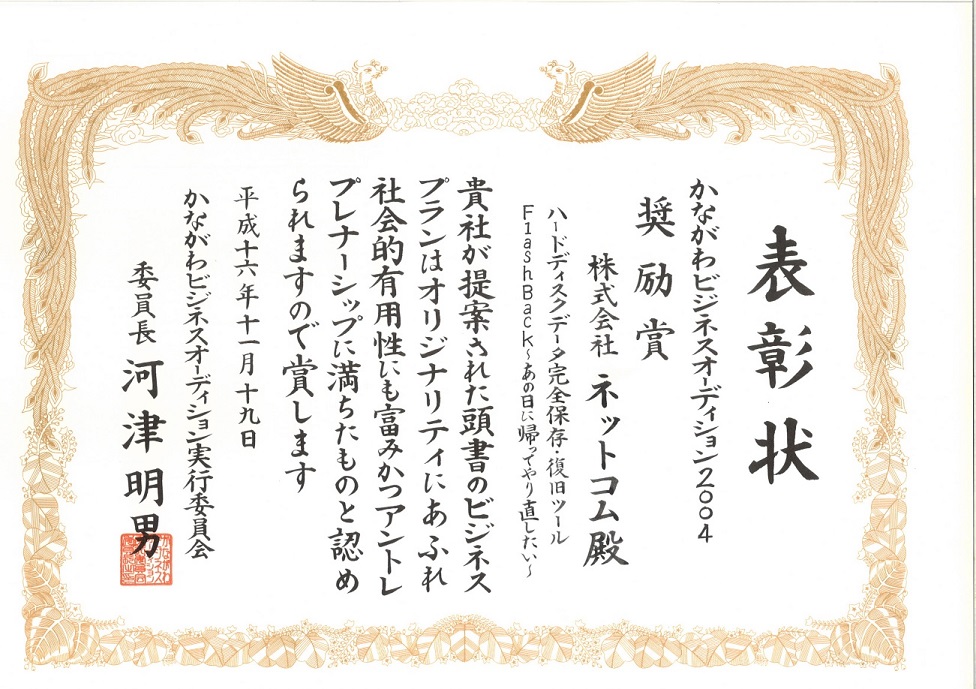 表彰状
かながわビジネスオーディション2004
奨励賞
株式会社 ネットコム殿
ハードディスクデータ完全保存・復旧ツール
FlashBack～あの日に帰ってやり直したい～
貴社が提案された頭書のビジネス
プランはオリジナリティにあふれ
社会的有用性にも富みかつアントレ
プレナーシップに満ちたものと認め
られますので賞します
平成十六年十一月十九日
かながわビジネスオーディション実行委員会
委員長 河津明男